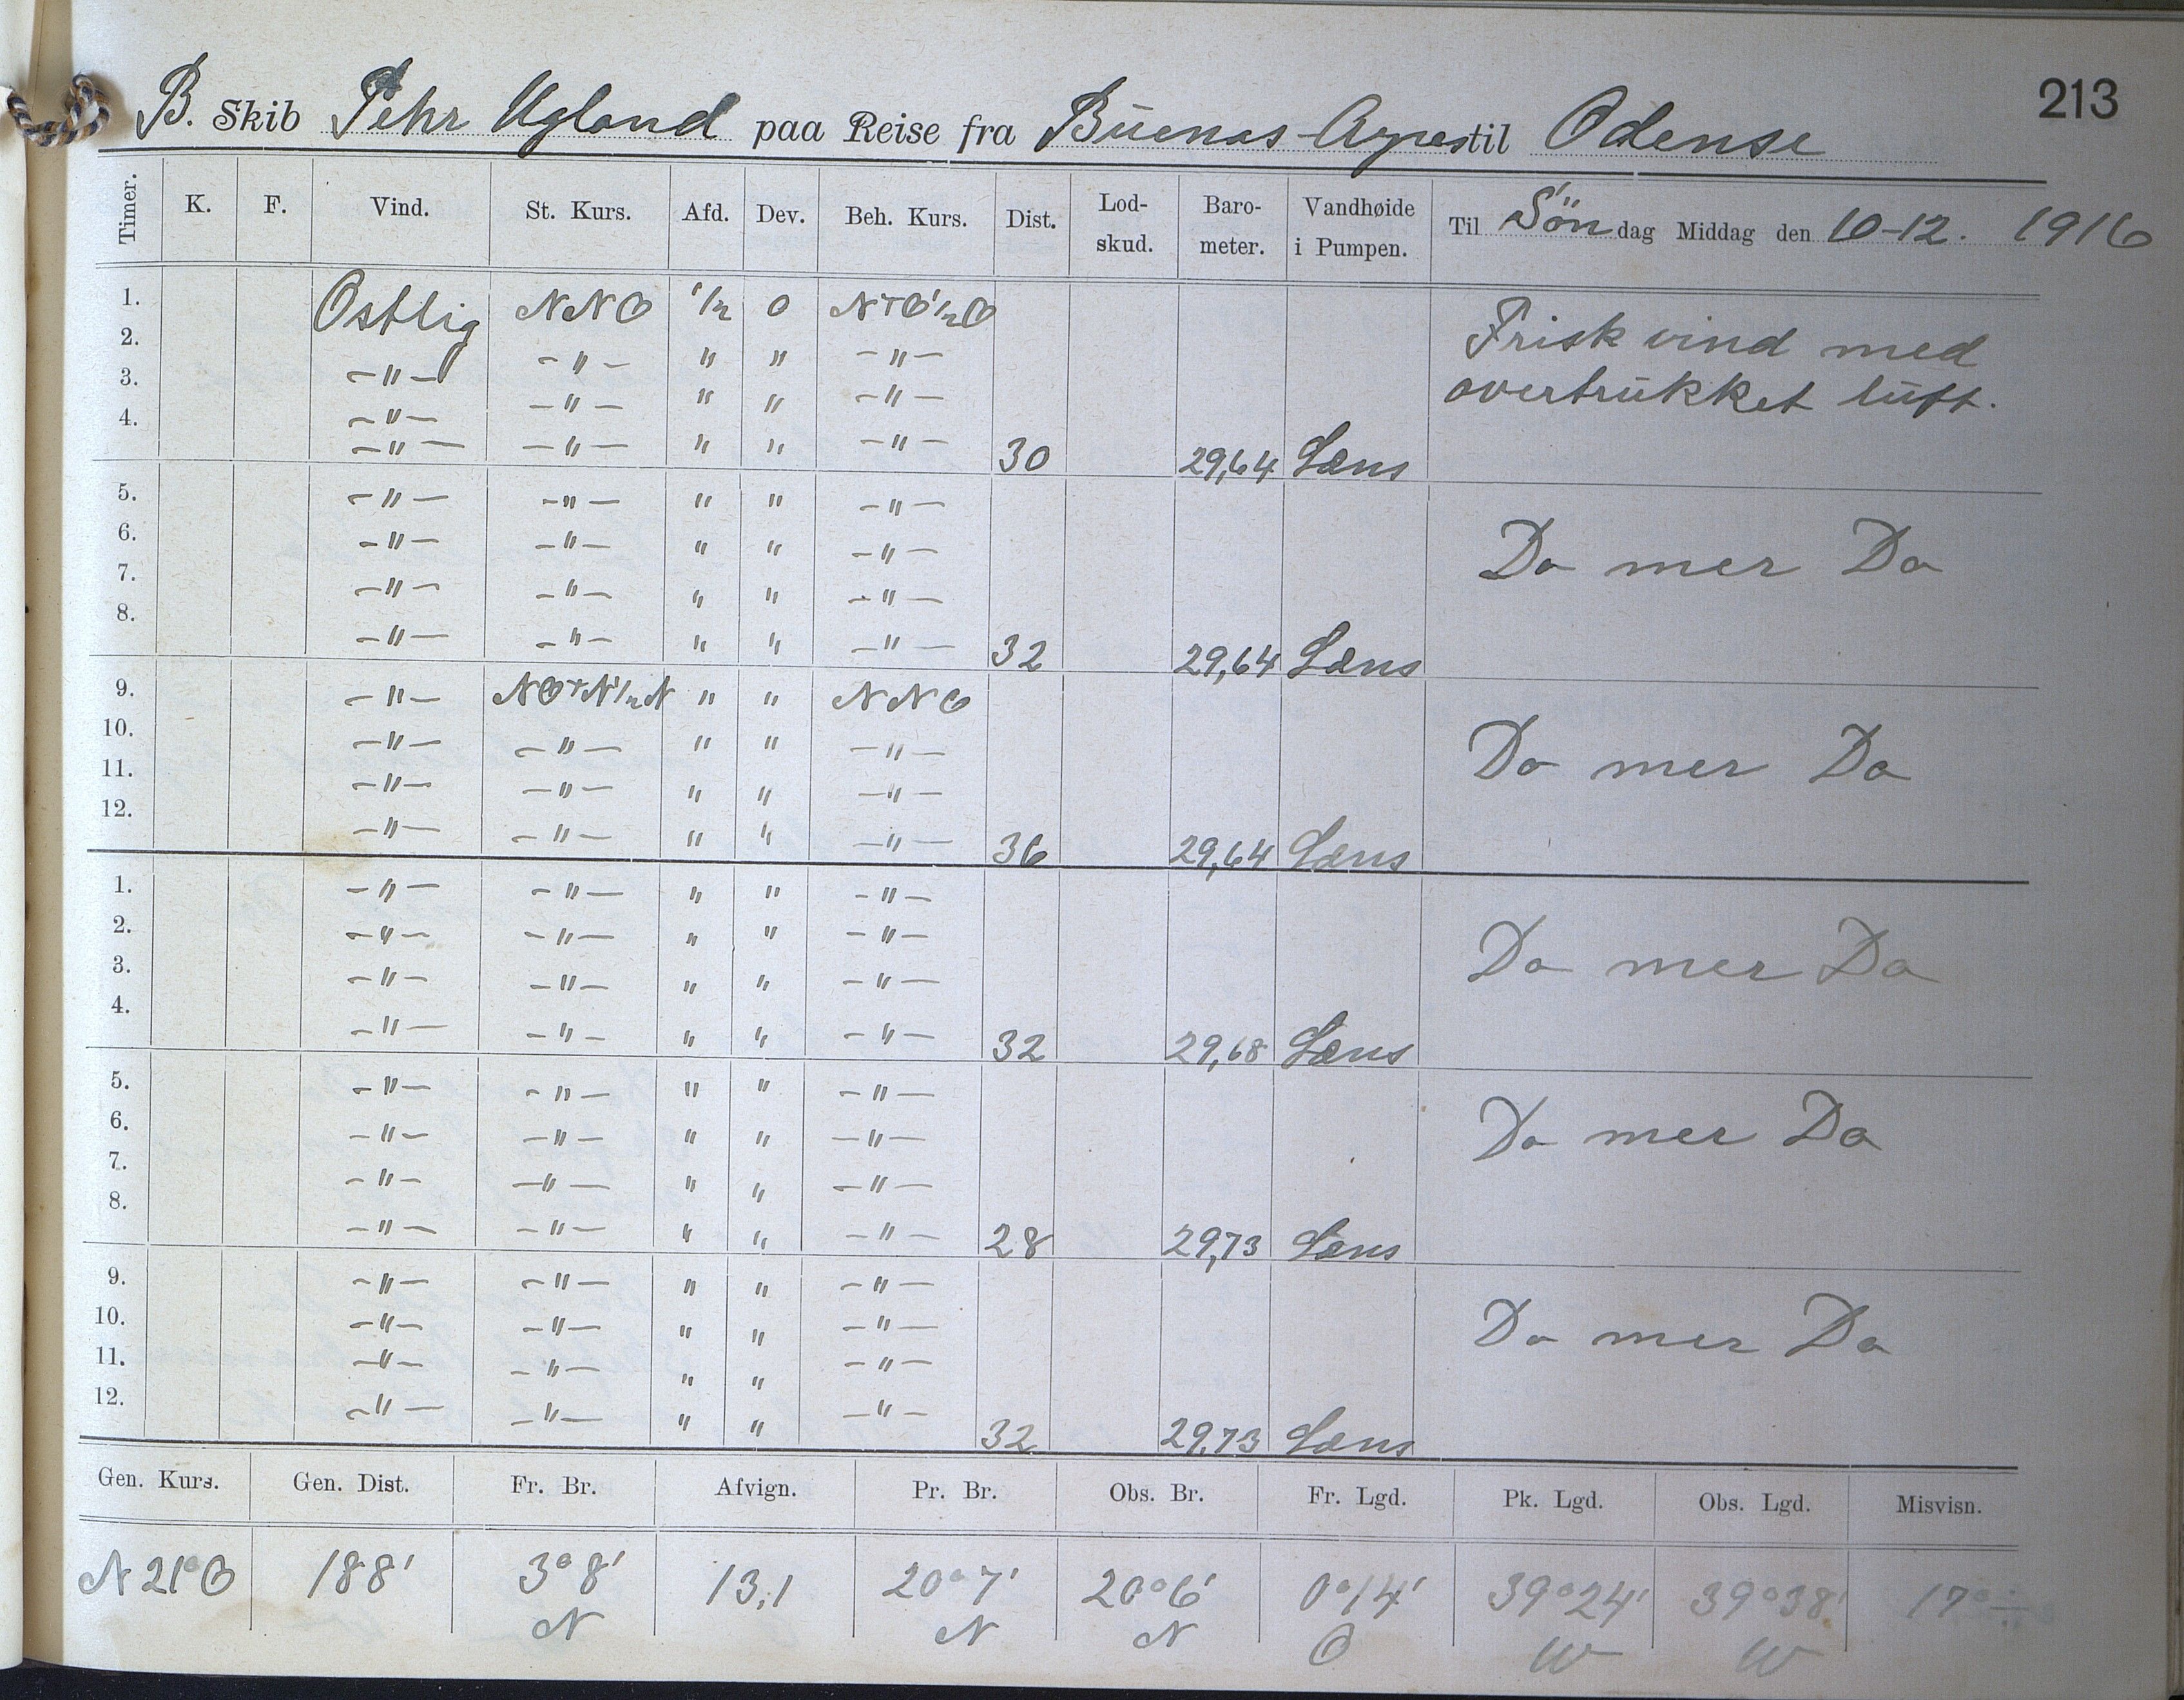 213
B. Skib Pehr Ugland paa Reise fra Buenos-Ayres til Odense
Timer. K. F. Vind. St. Kurs. Afd. Dev. Beh. Kurs. Dist. Lod-skud. Baro-meter. Vandhøide i Pumpen. Til Søndag Middag den 10-12. 1916
1. Ostlig NNO 1/2 0 NTO1/2O
Frisk vind med
2. -"- -"- " " -"-
overtrukket luft.
3. -"- -"- " " -"-
4. -"- -"- " " -"- 30 29,64 Læns
5. -"- -"- " " -"-
6. -"- -"- " " -"- Do mer Do
7. -"- -"- " " -"-
8. -"- -"- " " -"- 32 29,64 Læns
9. -"- NOTN1/2N " " NNO
10. -"- -"- " " -"- Do mer Do
11. -"- -"- " " -"-
12. -"- -"- " " -"- 36 29,64 Læns
1. -"- -"- " " -"-
2. -"- -"- " " -"- Do mer Do
3. -"- -"- " " -"-
4. -"- -"- " " -"- 32 29,68 Læns
5. -"- -"- " " -"-
6. -"- -"- " " -"- Do mer Do
7. -"- -"- " " -"-
8. -"- -"- " " -"- 28 29,73 Læns
9. -"- -"- " " -"-
10. -"- -"- " " -"- Do mer Do
11. -"- -"- " " -"-
12. -"- -"- " " -"- 32 29,73 Læns
Gen. Kurs. Gen. Dist. Fr. Br. Afvign. Pr. Br. Obs. Br. Fr. Lgd. Pk. Lgd. Obs. Lgd. Misvisn.
N21°O 188' 3°8' 13,1 20°7' 20°6' 0°14' 39°24' 39°38' 17°÷
N N N O W W